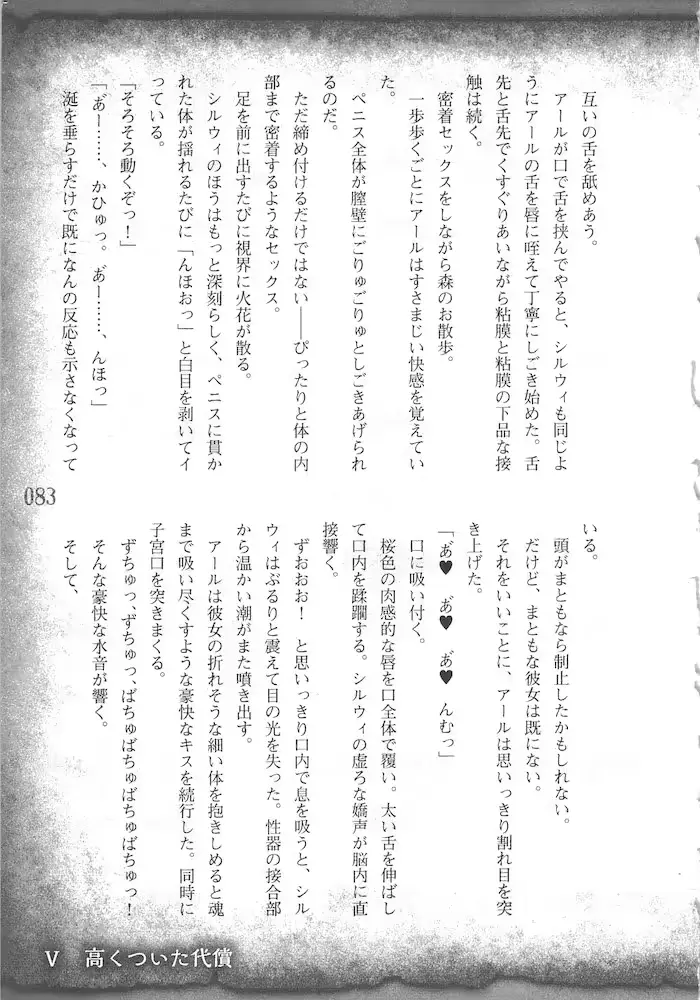 互いの舌を舐めあう。
アールが口で舌を挟んでやると、シルウィも同じよ
うにアールの舌を唇に咥えて丁寧にしごき始めた。舌
先と舌先でくすぐりあいながら粘膜と粘膜の下品な接
触は続く。
密着セックスをしながら森のお散歩。
一歩歩くごとにアールはすさまじい快感を覚えてい
た。
ペニス全体が膣壁にごりゅごりゅとしごきあげられ
るのだ。
ただ締め付けるだけではない――ぴったりと体の内
部まで密着するようなセックス。
足を前に出すたびに視界に火花が散る。
シルウィのほうはもっと深刻らしく、ペニスに貫か
れた体が揺れるたびに「んほおっ」と白目を剥いてイ
っている。
「そろそろ動くぞっ！」
「あ゛ー……、かひゅっ。あ゛ー……、んほっ」
涎を垂らすだけで既になんの反応も示さなくなって
いる。
頭がまともなら制止したかもしれない。
だけど、まともな彼女は既にない。
それをいいことに、アールは思いっきり割れ目を突
き上げた。
「あ゛♥　あ゛♥　あ゛♥　んむっ」
口に吸い付く。
桜色の肉感的な唇を口全体で覆い。太い舌を伸ばし
て口内を蹂躙する。シルウィの虚ろな嬌声が脳内に直
接響く。
ずおおお！　と思いっきり口内で息を吸うと、シル
ウィはぶるりと震えて目の光を失った。性器の接合部
から温かい潮がまた噴き出す。
アールは彼女の折れそうな細い体を抱きしめると魂
まで吸い尽くすような豪快なキスを続行した。同時に
子宮口を突きまくる。
ずちゅっ、ずちゅっ、ばちゅばちゅばちゅばちゅっ！
そんな豪快な水音が響く。
そして、
083
Ⅴ　高くついた代償